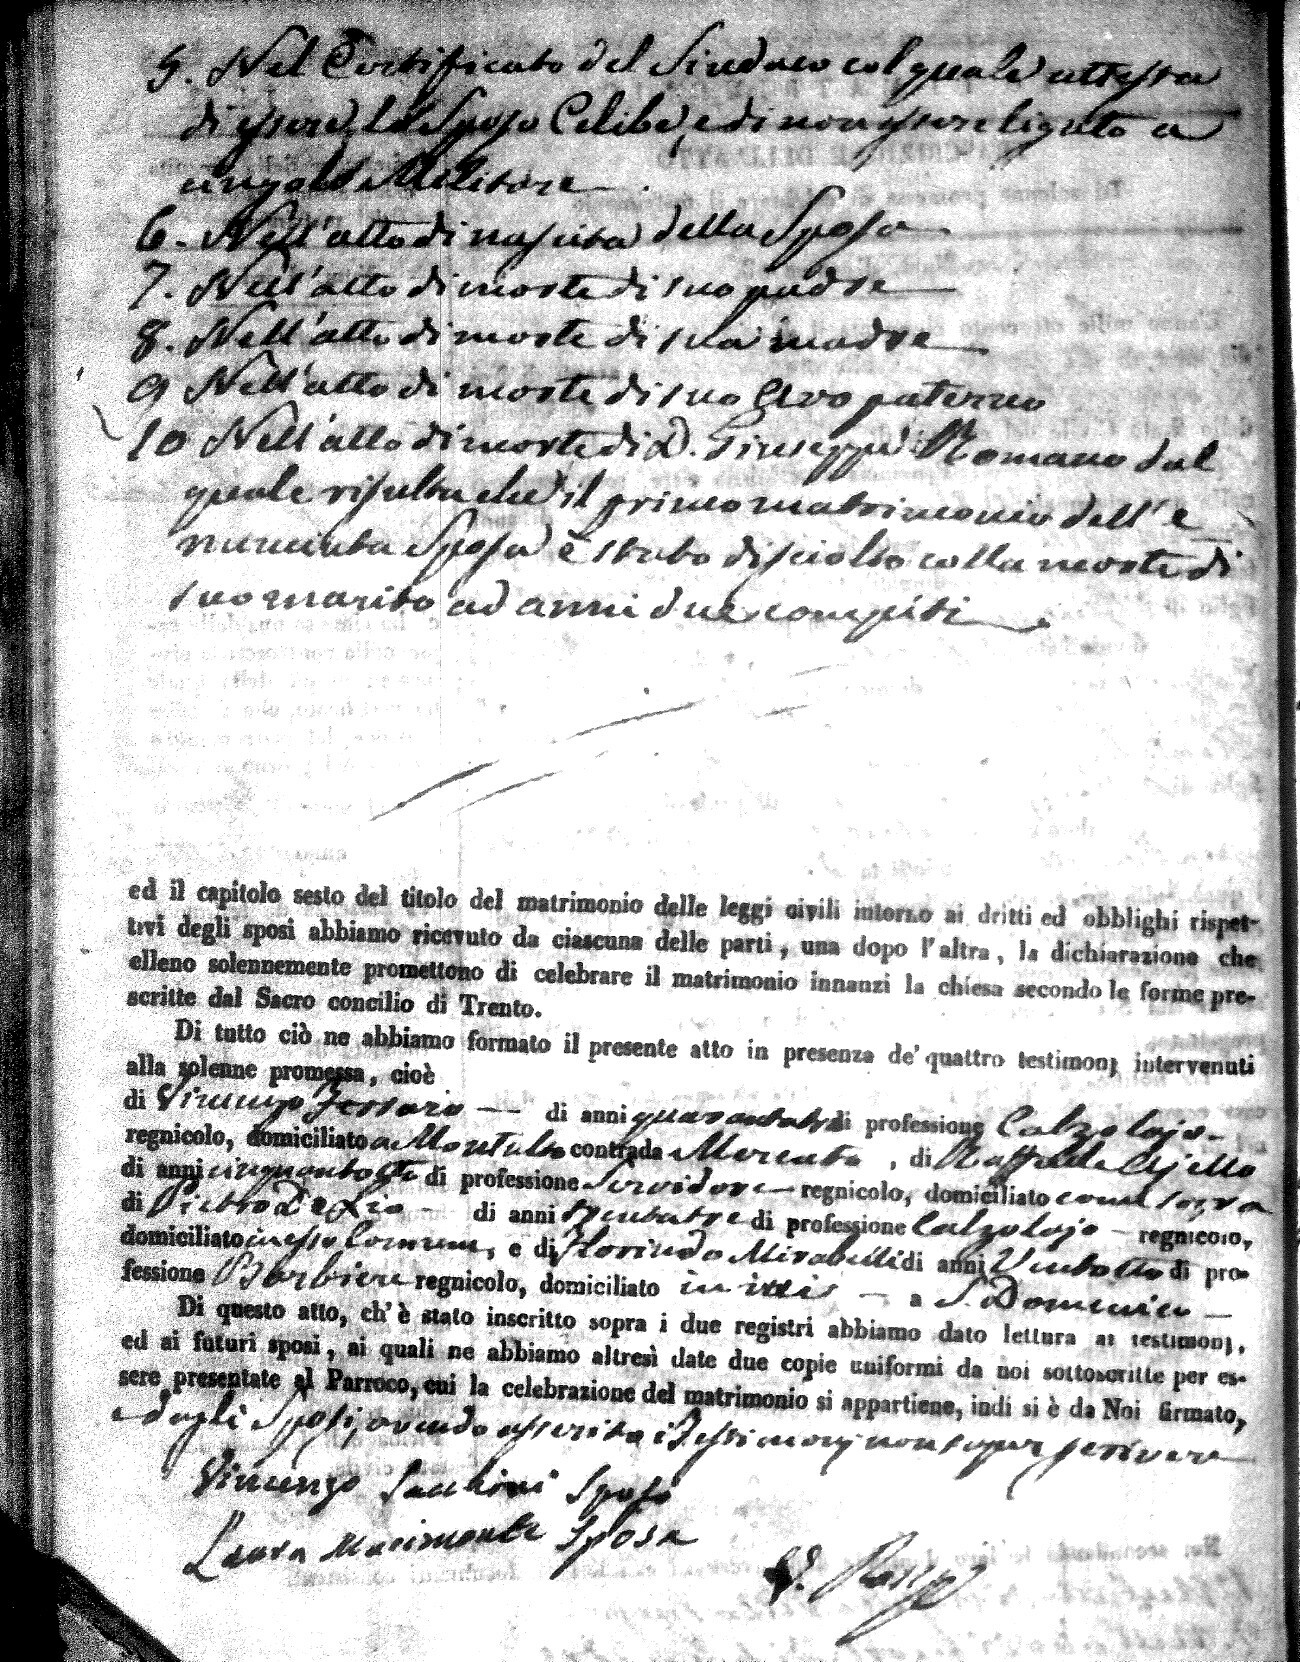 5. Nel Certificato del Sindaco col quale attesta
di essere lo Sposo Celibe, e di non essere ligato a
Militare
6. Nell'atto di nascita della Sposa
7. Nell'atto di morte di suo padre
8. Nell'atto di morte di sua madre
9 Nell'atto di morte di suo Avo paterno
10 Nell'atto di morte di D. Giuseppe Romano dal
quale risulta che il primo matrimonio dell'e
nunciata Sposa è stato disciolto colla morte di
suo marito ad anni due compiti
ed il capitolo sesto del titolo del matrimonio delle leggi civili intorno ai dritti ed obblighi rispet-
tivi degli sposi abbiamo ricevuto da ciascuna delle parti, una dopo l'altra, la dichiarazione che
elleno solennemente promettono di celebrare il matrimonio innanzi la chiesa secondo le forme pre-
scritte dal Sacro concilio di Trento.
Di tutto ciò ne abbiamo formato il presente atto in presenza de' quattro testimonj intervenuti
alla solenne promessa, cioè
di Vincenzo Ferraro — di anni quarantatre di professione Calzolajo -
regnicolo, domiciliato a Montalto contrada Mercato, di Raffaele Ajello
di anni cinquantotto di professione Servidore — regnicolo, domiciliato come sopra
di Pietro De Lio - di anni trentatre di professione Calzolajo — regnicolo,
domiciliato in esso Comune, e di Florindo Mirabelli di anni Ventotto di pro-
fessione Barbiere regnicolo, domiciliato in — a S. Domenico —
Di questo atto, ch'è stato inscritto sopra i due registri abbiamo dato lettura ai testimonj,
ed ai futuri sposi, ai quali ne abbiamo altresì date due copie uniformi da noi sottoscritte per es-
sere presentate al Parroco, cui la celebrazione del matrimonio si appartiene, indi si è da Noi firmato,
e dagli Sposi, avendo asserito i Testimonj non saper scrivere
Vincenzo Sacchini Sposo
Laura Sposa